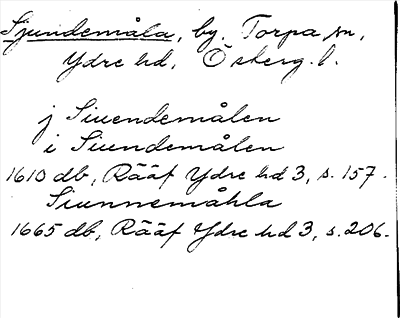 Sjundemåla, by. Torpa sn,
Ydre hd, Österg. l.
j Siuendemålen
i Siundemålen
1610 db, Rääf Ydre hd 3, s. 157.
Siunnemåhla
1665 db, Rääf Ydre hd 3, s. 206.